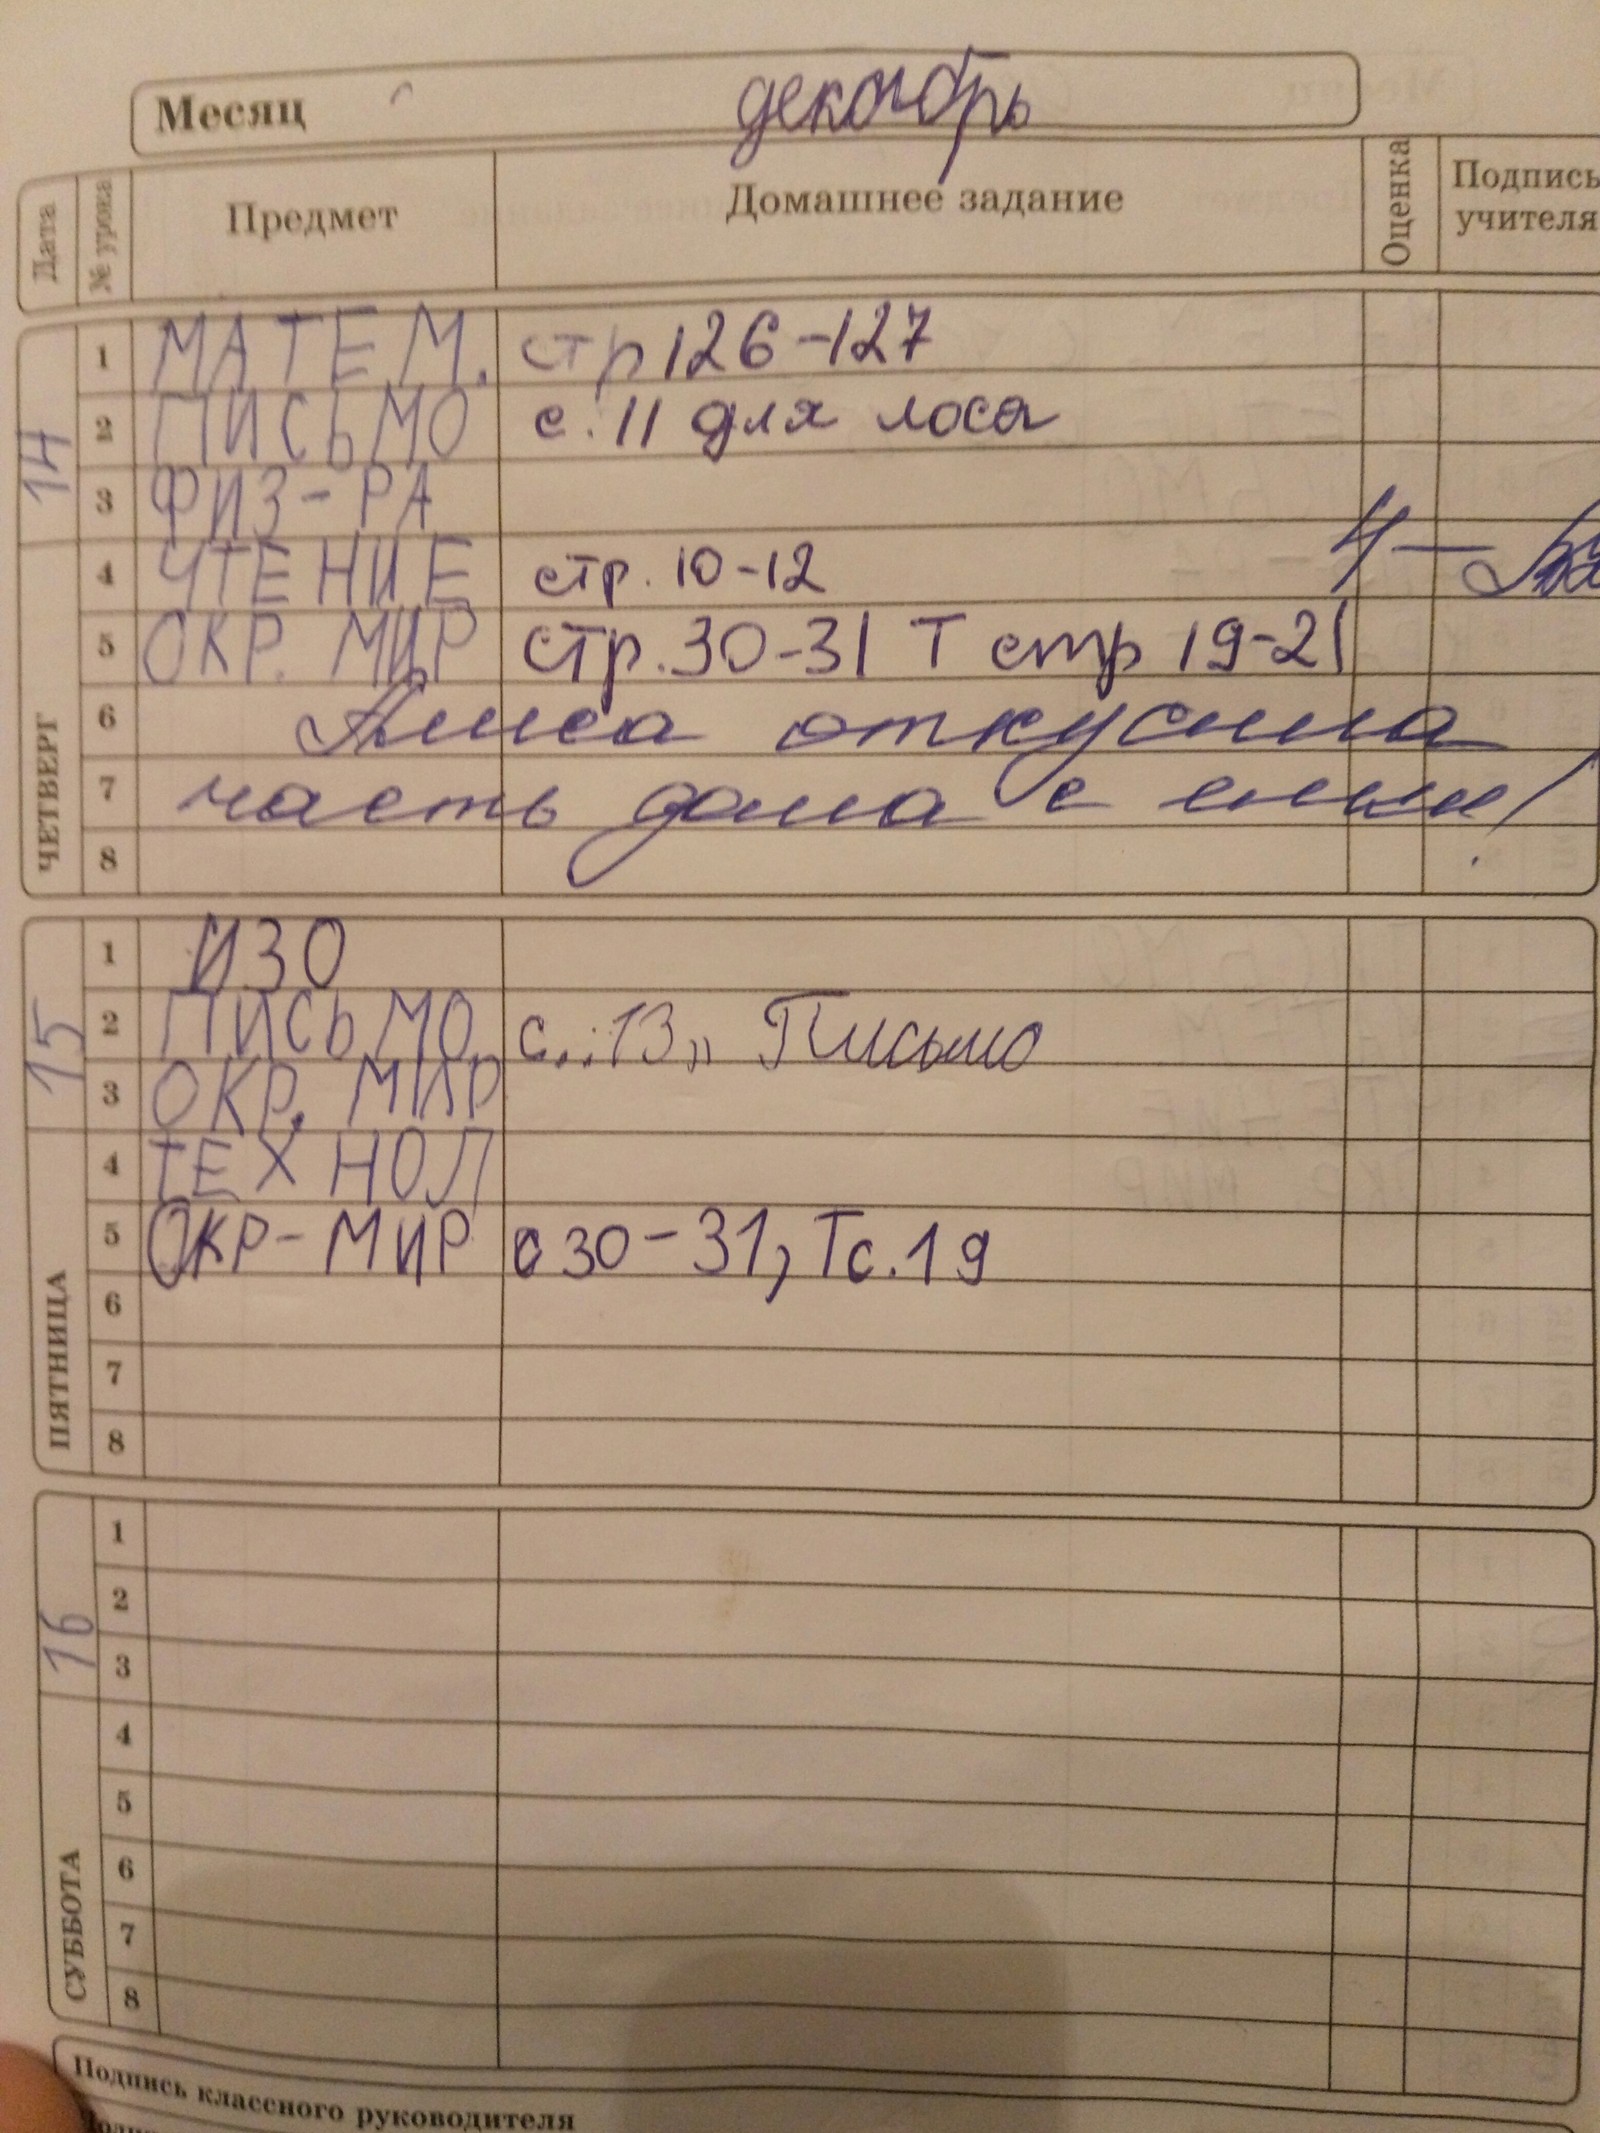 Месяц декабрь
Дата № урока Предмет Домашнее задание Оценка Подпись учителя
14 ЧЕТВЕРГ
1 МАТЕМ. стр 126-127
2 ПИСЬМО с. 11 для лоса
3 ФИЗ-РА
4 ЧТЕНИЕ стр. 10-12 4-
5 ОКР. МИР стр. 30-31 Т стр 19-21
6 Алиса откусила
7 часть дома с ели!
8
15 ПЯТНИЦА
1 ИЗО
2 ПИСЬМО. с..:13,, Письмо
3 ОКР. МИР
4 ТЕХНОЛ
5 ОКР-МИР с 30-31, Тс.19
6
7
8
16 СУББОТА
1
2
3
4
5
6
7
8
Подпись классного руководителя